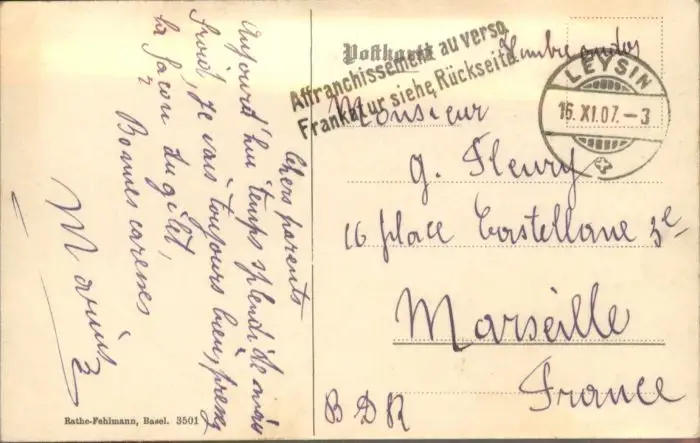 Chers parents
Aujourd'hui temps splendide mais
froid, je vais toujours bien, prenez
la façon du gilet,
Bonnes caresses
Marius
Rathe-Fehlmann, Basel. 3501
Postkarte
Timbre au dos
Affranchissement au verso.
Frankatur siehe Rückseite.
LEYSIN
16. XI. 07. - 3
Monsieur
G. Fleury
16 place Castellane 3e
Marseille
France
B D R